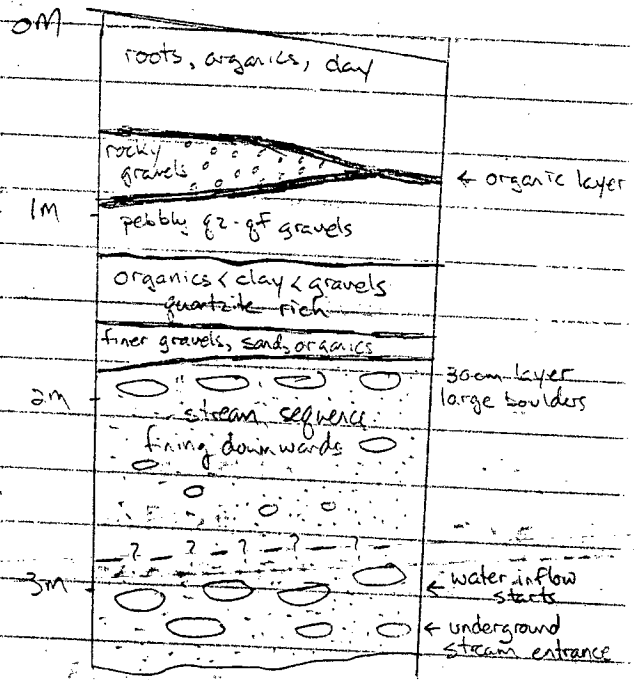 0M
roots, organics, clay
rocky
gravels
← organic layer
1M
pebbly qz-qf gravels
organics < clay < gravels
quartzite rich
finer gravels, sands, organics
30cm layer
large boulders
2M
stream sequence
fining downwards
? ? ? ? ?
3M
← water inflow
starts
← underground
stream entrance